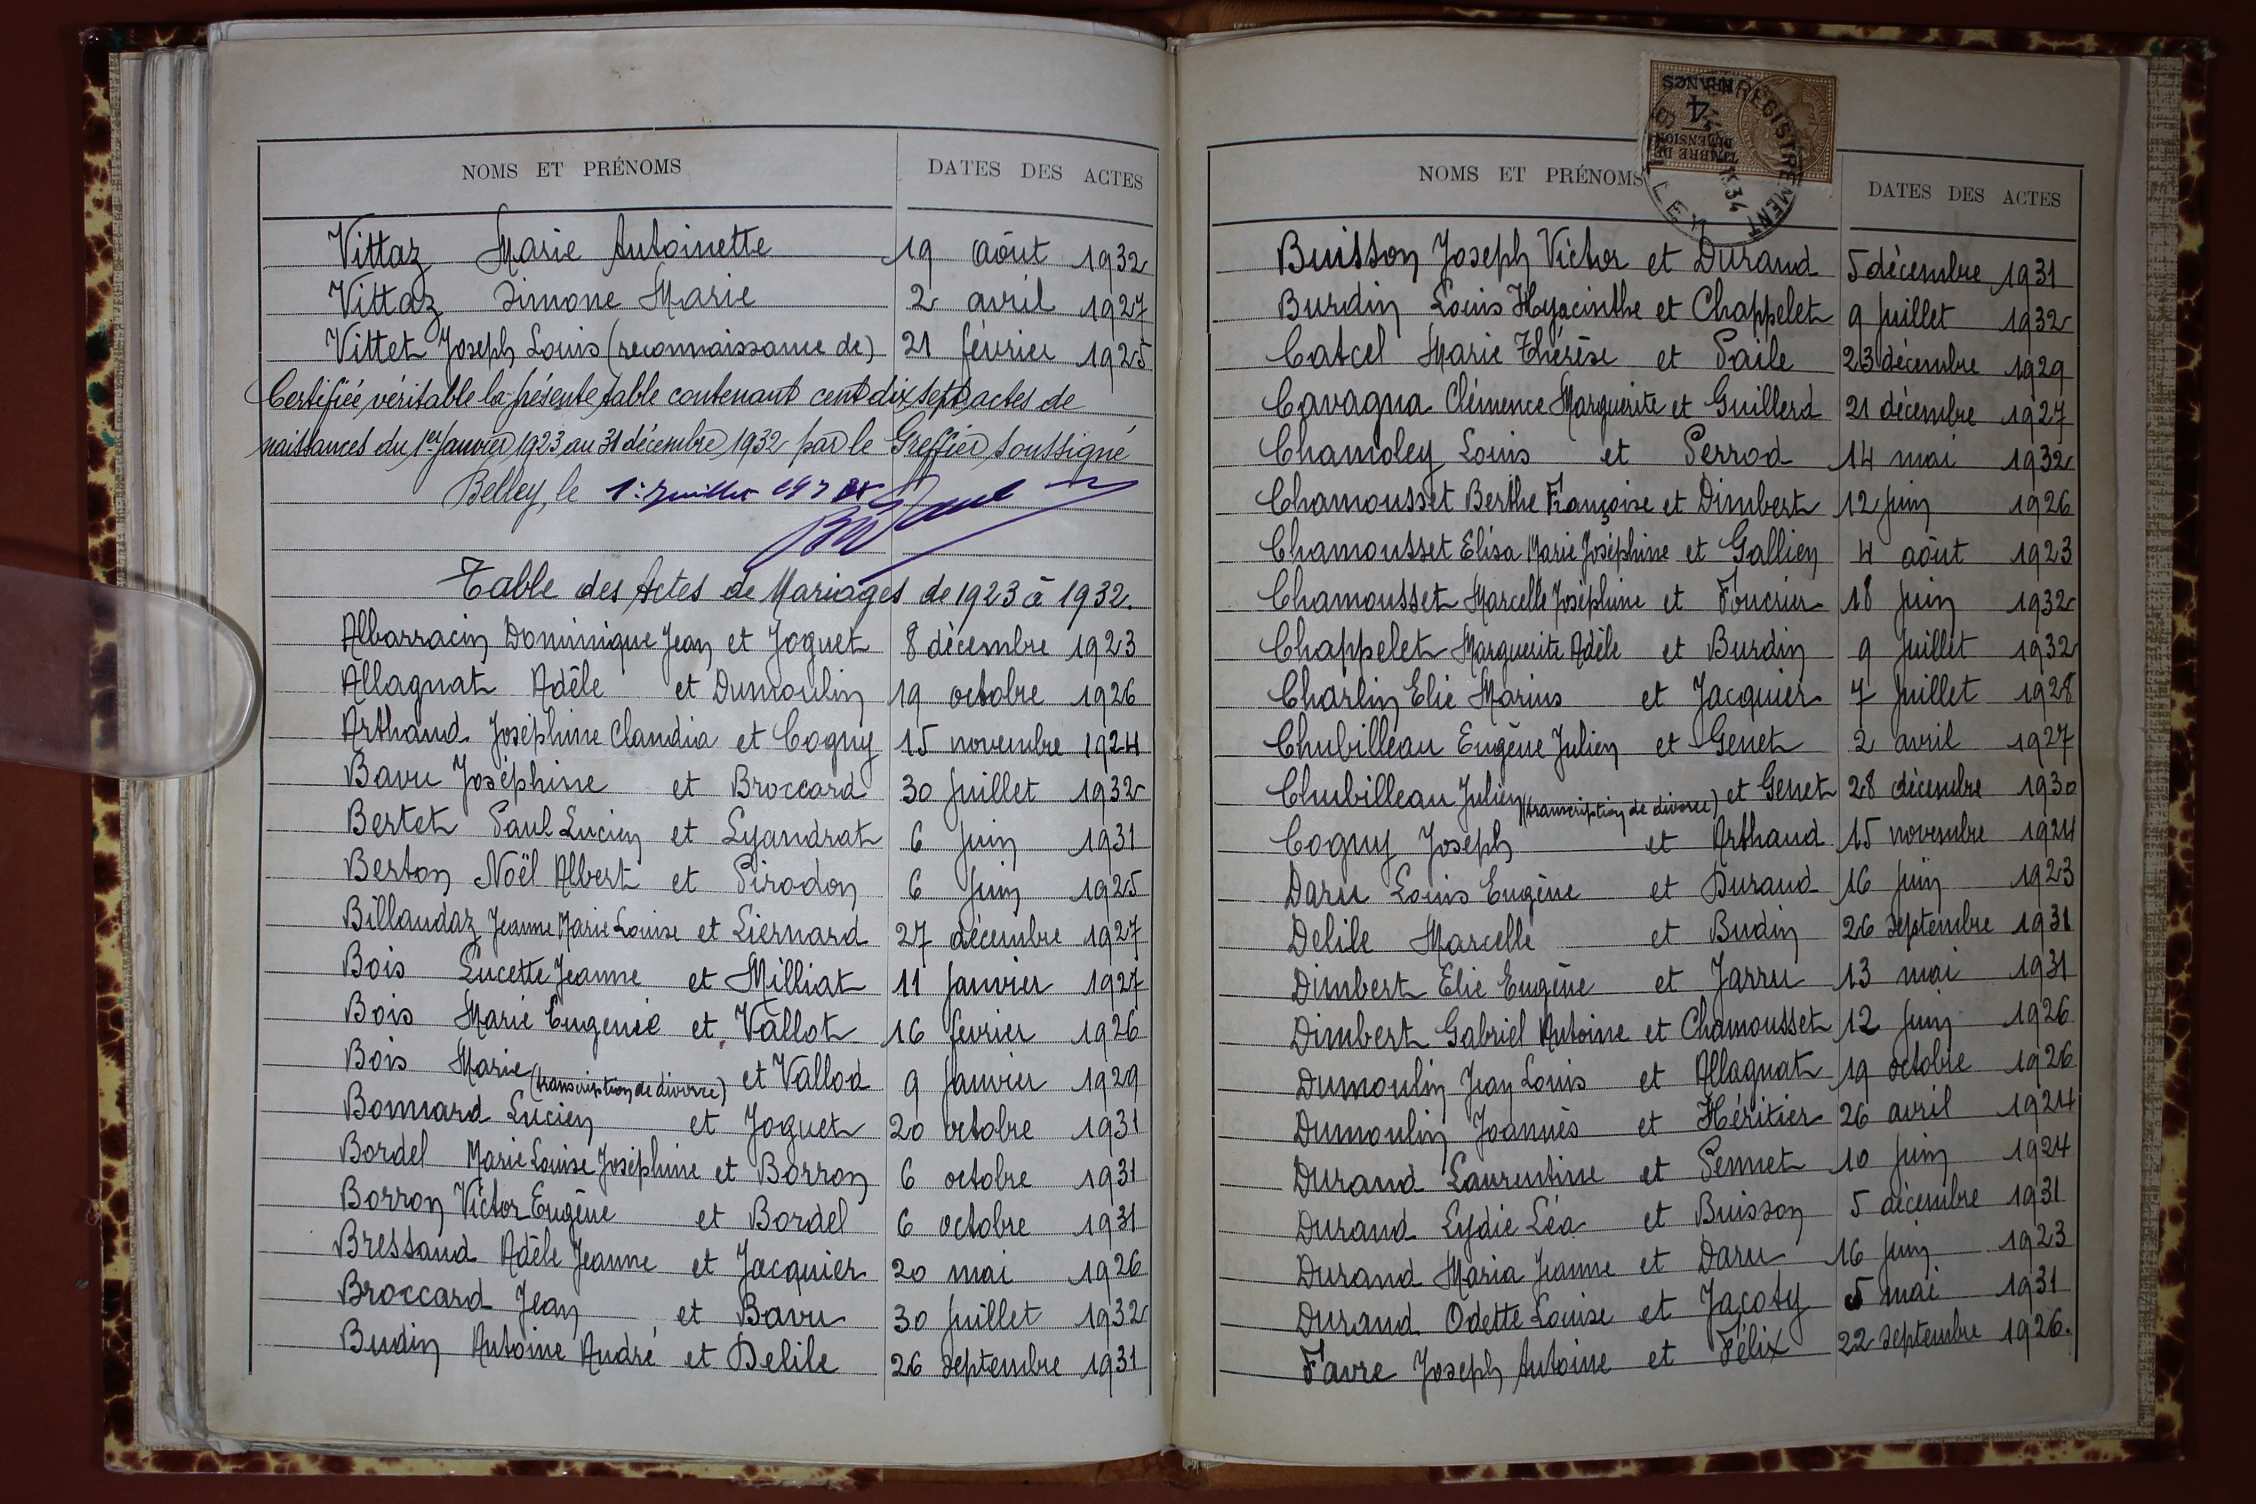 NOMS ET PRÉNOMS DATES DES ACTES
Vittaz Marie Antoinette 19 août 1932
Vittaz Simone Marie 2 avril 1927
Vittet Joseph Louis (reconnaissance de) 21 février 1925
Certifiée véritable la présente table contenant cent dix sept actes de
naissances du 1er Janvier 1923 au 31 décembre 1932 par le Greffier soussigné
Belley, le 1er Juillet
Table des Actes de Mariages de 1923 à 1932.
Albarracin Dominique Jean et Joguet 8 décembre 1923
Allagnat Adèle et Dumoulin 19 octobre 1926
Arthaud Joséphine Claudia et Cogny 15 novembre 1924
Bavu Joséphine et Broccard 30 Juillet 1932
Bertet Paul Lucien et Lyandrat 6 Juin 1931
Berton Noël Albert et Pirodon 6 Juin 1925
Billaudaz Jeanne Marie Louise et Liernard 27 décembre 1927
Bois Lucette Jeanne et Milliat 11 Janvier 1927
Bois Marie Eugenie et Vallot 16 fevrier 1926
Bois Marie (transcription de divorce) et Vallod 9 Janvier 1929
Bonnard Lucien et Joguet 20 octobre 1931
Bordel Marie Louise Joséphine et Borron 6 octobre 1931
Borron Victor Eugène et Bordel 6 octobre 1931
Bressand Adèle Jeanne et Jacquier 20 mai 1926
Broccard Jean et Bavu 30 Juillet 1932
Budin Antoine André et Delile 26 septembre 1931
TIMBRE DE DIMENSION 4 FRANCS
ENREGISTREMENT
NOMS ET PRÉNOMS DATES DES ACTES
Buisson Joseph Victor et Durand 5 décembre 1931
Burdin Louis Hyacinthe et Chappelet 9 Juillet 1932
Catcel Marie Thérèse et Paile 23 décembre 1929
Cavagna Clémence Marguerite et Guillerd 21 décembre 1927
Chamoley Louis et Perrod 14 mai 1932
Chamousset Berthe Françoise et Dimbert 12 Juin 1926
Chamousset Elisa Marie Joséphine et Gallien 4 août 1923
Chamousset Marcelle Joséphine et Foucrier 18 Juin 1932
Chappelet Marguerite Adèle et Burdin 9 Juillet 1932
Charlin Elie Marius et Jacquier 7 Juillet 1928
Chubilleau Eugène Julien et Genet 2 avril 1927
Chubilleau Julien (transcription de divorce) et Genet 28 décembre 1930
Cogny Joseph et Arthaud 15 novembre 1924
Daru Louis Eugène et Durand 16 Juin 1923
Delile Marcelle et Budin 26 septembre 1931
Dimbert Elie Eugène et Jarru 13 mai 1931
Dimbert Gabriel Antoine et Chamousset 12 Juin 1926
Dumoulin Jean Louis et Allagnat 19 octobre 1926
Dumoulin Joannès et Héritier 26 avril 1924
Durand Laurentine et Pennet 10 Juin 1924
Durand Lydie Léa et Buisson 5 décembre 1931
Durand Maria Jeanne et Daru 16 Juin 1923
Durand Odette Louise et Jacoty 5 mai 1931
Favre Joseph Antoine et Félix 22 septembre 1926.